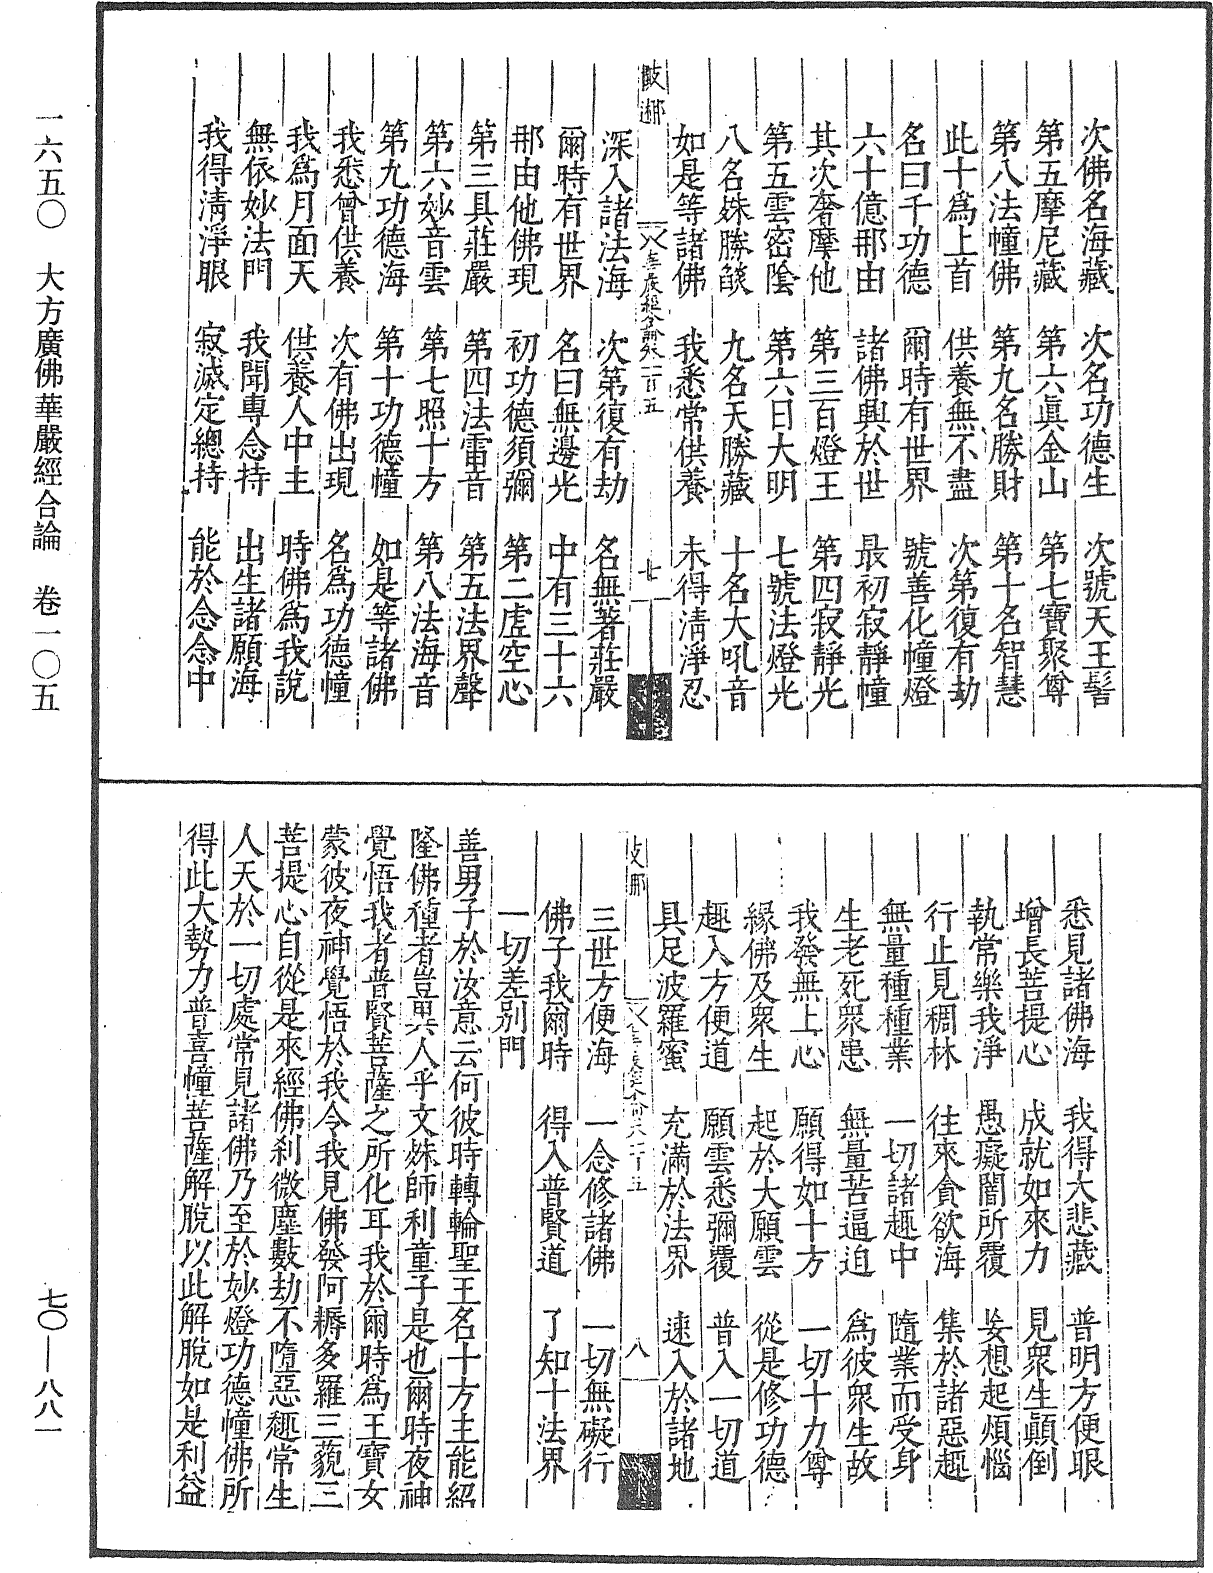 次佛名海藏　次名功德生　次號天王髻
第五摩尼藏　第六眞金山　第七寶聚尊
第八法幢佛　第九名勝財　第十名智慧
此十爲上首　供養無不盡　次第復有劫
名曰千功德　爾時有世界　號善化幢燈
六十億那由　諸佛興於世　最初寂靜幢
其次奢摩他　第三百燈王　第四寂靜光
第五雲密陰　第六日大明　七號法燈光
八名姝勝燄　九名天勝藏　十名大吼音
如是等諸佛　我悉常供養　未得淸淨忍
深入諸法海　次第復有劫　名無著莊嚴
爾時有世界　名曰無邊光　中有三十六
那由他佛現　初功德須彌　第二虛空心
第三具莊嚴　第四法雷音　第五法界聲
第六妙音雲　第七照十方　第八法海音
第九功德海　第十功德幢　如是等諸佛
我悉曾供養　次有佛出現　名爲功德幢
我爲月面天　供養人中主　時佛爲我說
無依妙法門　我聞專念持　出生諸願海
我得淸淨眼　寂滅定總持　能於念念中
悉見諸佛海　我得大悲藏　普明方便眼
增長菩提心　成就如來力　見衆生顚倒
執常樂我淨　愚癡闇所覆　妄想起煩惱
行止見稠林　往來貪欲海　集於諸惡趣
無量種種業　一切諸趣中　隨業而受身
生老死衆患　無量苦逼迫　爲彼衆生故
我發無上心　願得如十方　一切十力尊
緣佛及衆生　起於大願雲　從是修功德
趣入方便道　願雲悉彌覆　普入一切道
具足波羅蜜　充滿於法界　速入於諸地
三世方便海　一念修諸佛　一切無礙行
佛子我爾時　得入普賢道　了知十法界
一切差別門
善男子於汝意云何彼時轉輪聖王名十方主能紹
隆佛種者豈異人乎文姝師利童子是也爾時夜神
覺悟我者普賢菩薩之所化耳我於爾時爲王寶女
蒙彼夜神覺悟於我令我見佛發阿耨多羅三藐三
菩提心自從是來經佛刹微塵數劫不墮惡趣常生
人天於一切處常見諸佛乃至於妙燈功德幢佛所
得此大勢力普喜幢菩薩解脫以此解脫如是利益
一六五〇　大方廣佛華嚴經合論　卷一〇五
七〇—八八一